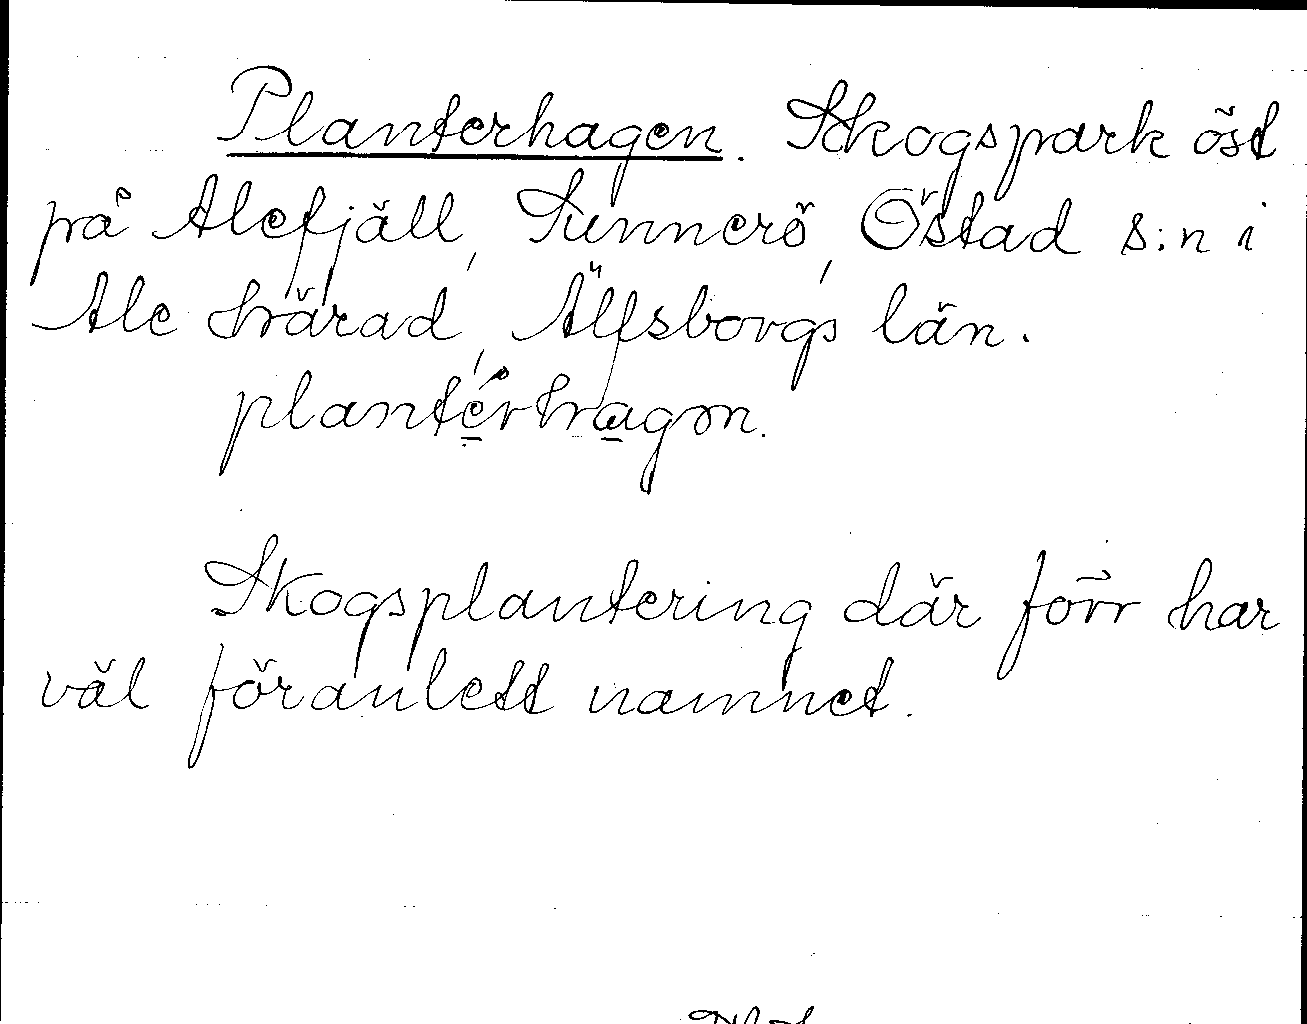 Planterhagen. Skogspark öst
på Alefjäll, Sunnerö, Östad s:n i
Ale härad, Älfsborgs län.
plantérhagon.
Skogsplantering där förr har
väl föranlett namnet.